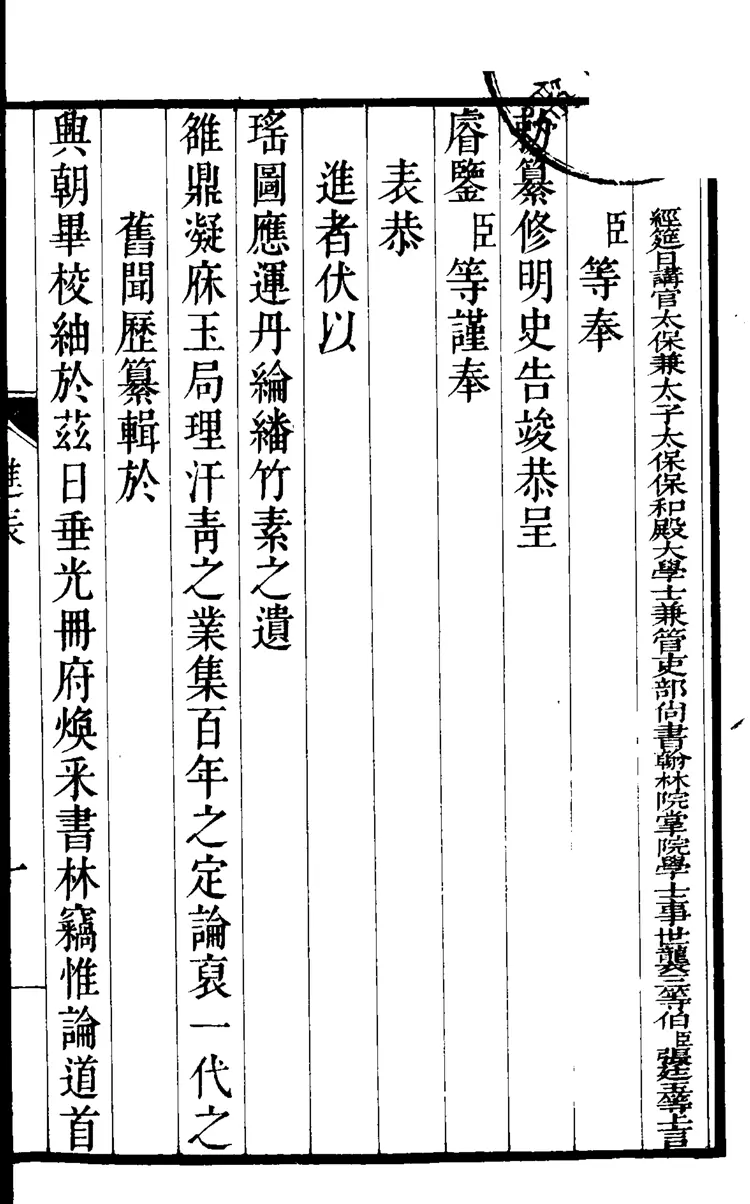 經筵日講官太保兼太子太保保和殿大學士兼管吏部尚書翰林院掌院學士事世襲三等伯臣張廷玉等上言
臣等奉
勅纂修明史告竣恭呈
睿鑒臣等謹奉
表恭
進者伏以
瑤圖應運丹綸繙竹素之遺
雒鼎凝庥玉局理汗靑之業集百年之定論裒一代之
舊聞歷纂輯於
興朝畢校紬於茲日垂光冊府煥采書林竊惟論道首
進表